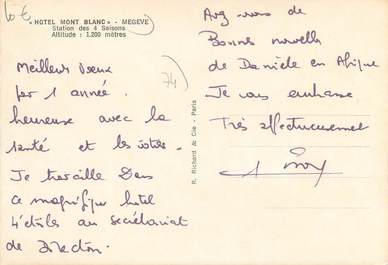 10 €
« HOTEL MONT BLANC » - MEGEVE
Station des 4 Saisons
Altitude : 1.200 mètres
74
Meilleur Voeux
par 1 année
heureuse avec la
santé et les votre.
Je travaille Dans
ce magnifique hotel
4 étoiles au secrétariat
de Direction.
R. Richard & Cie - Paris
vous de
Bonnes nouvelles
de Danièle en Afrique
Je vous embrasse
Très affectueusement